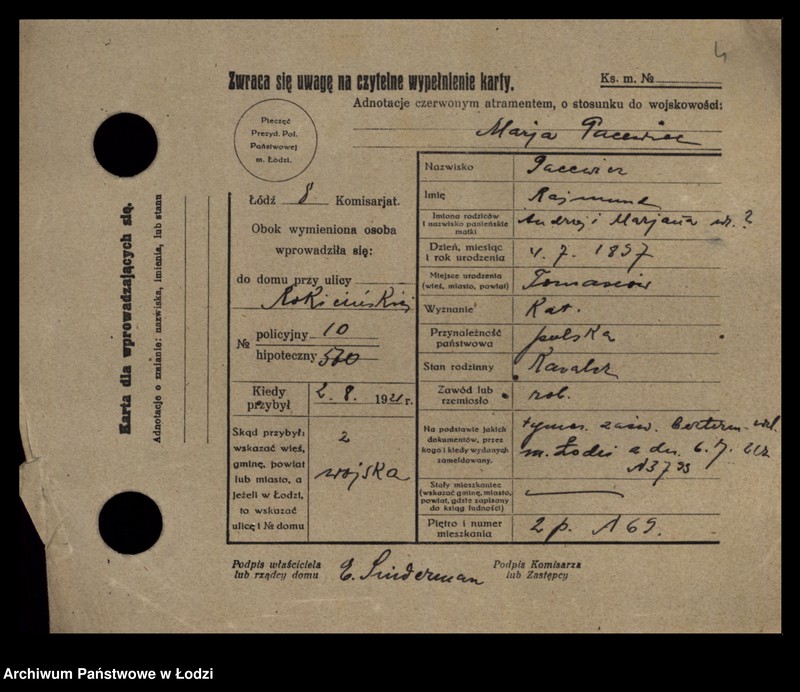 4
Zwraca się uwagę na czytelne wypełnienie karty.
Ks. m. №
Adnotacje czerwonym atramentem, o stosunku do wojskowości:
Marja Pacewicz
Pieczęć
Prezyd. Pol.
Państwowej
m. Łodzi.
Łódź 8 Komisarjat.
Obok wymieniona osoba
wprowadziła się:
do domu przy ulicy
Rokicińskiej
№ policyjny 10
hipoteczny 560
Kiedy przybył 2. 8. 1921 r.
Skąd przybył:
wskazać wieś,
gminę, powiat
lub miasto, a
jeżeli w Łodzi,
to wskazać
ulicę i № domu
z
wojska
Nazwisko Pacewicz
Imię Rajmund
Imiona rodziców
i nazwisko panieńskie
matki
Andrzej i Marjana ?
Dzień, miesiąc
i rok urodzenia
4. 7. 1897
Miejsce urodzenia
(wieś, miasto, powiat)
Tomaszów
Wyznanie Kat.
Przynależność
państwowa
polska
Stan rodzinny Kawaler
Zawód lub
rzemiosło
rob.
Na podstawie jakich
dokumentów, przez
kogo i kiedy wydanych
zameldowany.
tymcz. zaśw.
m. Łodzi z dn.
Stały mieszkaniec
(wskazać gminę, miasto,
powiat, gdzie zapisany
do ksiąg ludności)
Piętro i numer
mieszkania
2 p. 69.
Podpis właściciela
lub rządcy domu
E. Sinderman
Podpis Komisarza
lub Zastępcy
Karta dla wprowadzających się.
Adnotacje o zmianie: nazwiska, imienia, lub stanu
Archiwum Państwowe w Łodzi